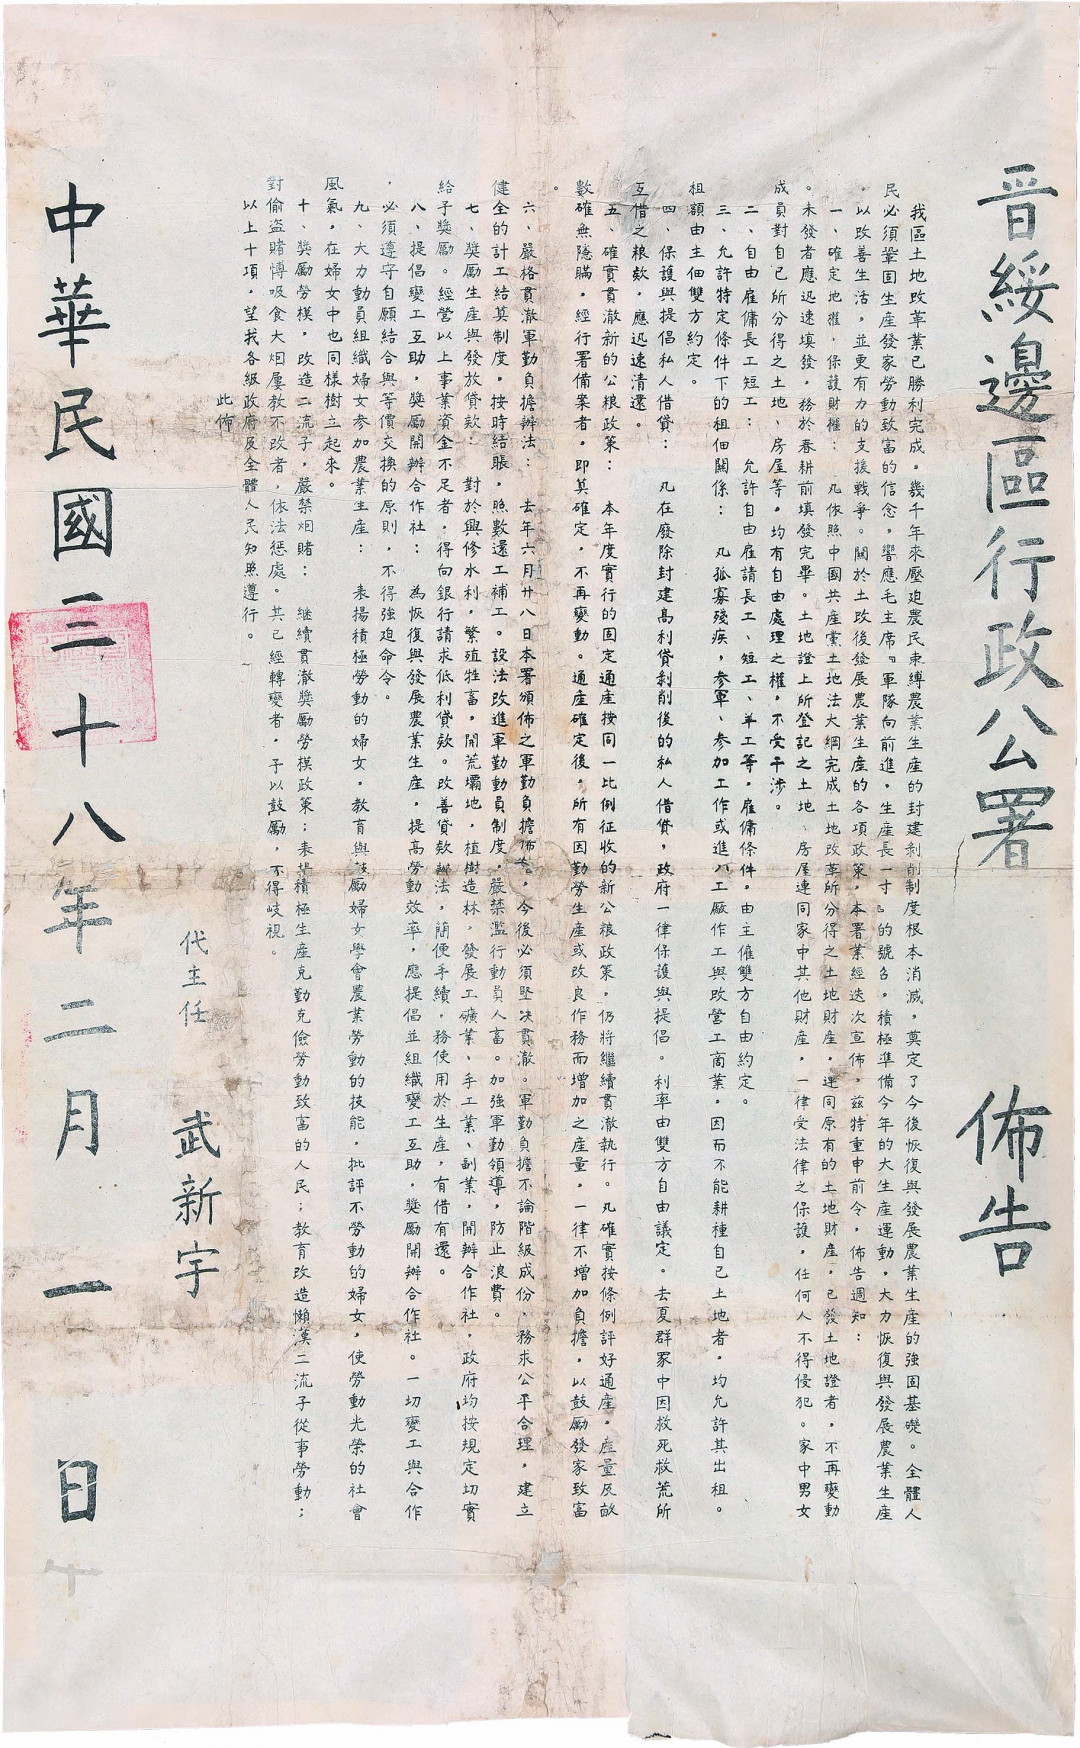 晉綏邊區行政公署 佈告
我區土地改革業已勝利完成，幾千年來壓迫農民束縛農業生產的封建剝削制度根本消滅，奠定了今後恢復與發展農業生產的強固基礎。全體人
民必須鞏固生產發家勞動致富的信念，響應毛主席『軍隊向前進，生產長一寸』的號召，積極準備今年的大生產運動，大力恢復與發展農業生產
，以改善生活，並更有力的支援戰爭。關於土改後發展農業生產的各項政策，本署業經迭次宣佈，茲特重申前令，佈告週知：
一、確定地權，保護財權： 凡依照中國共產黨土地法大綱完成土地改革所分得之土地財產，連同原有的土地財產，已發土地證者，不再變動
。未發者應迅速填發，務於春耕前填發完畢。土地證上所登記之土地、房屋連同家中其他財產，一律受法律之保護，任何人不得侵犯。家中男女
成員對自己所分得之土地、房屋等，均有自由處理之權，不受干涉。
二、自由雇傭長工短工： 允許自由雇請長工、短工、羊工等，雇傭條件，由主雇雙方自由約定。
三、允許特定條件下的租佃關係： 凡孤寡殘疾，參軍、參加工作或進入工廠作工與改營工商業，因而不能耕種自己土地者，均允許其出租。
租額由主佃雙方約定。
四、保護與提倡私人借貸： 凡在廢除封建高利貸剝削後的私人借貸，政府一律保護與提倡。利率由雙方自由議定。去夏群眾中因救死救荒所
互借之粮款，應迅速清還。
五、確實貫澈新的公粮政策： 本年度實行的固定通產按同一比例征收的新公粮政策，仍將繼續貫澈執行。凡確實按條例評好通產，產量及畝
數確無隱瞞，經行署備案者，即算確定，不再變動。通產確定後，所有因勤勞生產或改良作務而增加之產量，一律不增加負擔，以鼓勵發家致富
。
六、嚴格貫澈軍勤負擔辦法： 去年六月廿八日本署頒佈之軍勤負擔佈告，今後必須堅決貫澈。軍勤負擔不論階級成份，務求公平合理，建立
健全的計工結算制度，按時結賬，照數還工補工。設法改進軍勤動員制度，嚴禁濫行動員人畜。加強軍勤領導，防止浪費。
七、獎勵生產與發放貸款： 對於興修水利，繁殖牲畜，開荒壩地，植樹造林，發展工礦業、手工業、副業，開辦合作社，政府均按規定切實
給予獎勵。經營以上事業資金不足者，得向銀行請求低利貸款。改善貸款辦法，簡便手續，務使用於生產，有借有還。
八、提倡變工互助，獎勵開辦合作社： 為恢復與發展農業生產，提高勞動效率，應提倡並組織變工互助，獎勵開辦合作社。一切變工與合作
，必須遵守自願結合與等價交換的原則，不得強迫命令。
九、大力動員組織婦女參加農業生產： 表揚積極勞動的婦女，教育與鼓勵婦女學會農業勞動的技能，批評不勞動的婦女，使勞動光榮的社會
風氣，在婦女中也同樣樹立起來。
十、獎勵勞模，改造二流子，嚴禁烟賭： 繼續貫澈獎勵勞模政策；表揚積極生產克勤克儉勞動致富的人民；教育改造懶漢二流子從事勞動；
對偷盜賭博吸食大烟屢教不改者，依法惩處。其已經轉變者，予以鼓勵，不得歧視。
以上十項，望我各級政府及全體人民知照遵行。
此佈
代主任 武新宇
中華民國三十八年二月一日